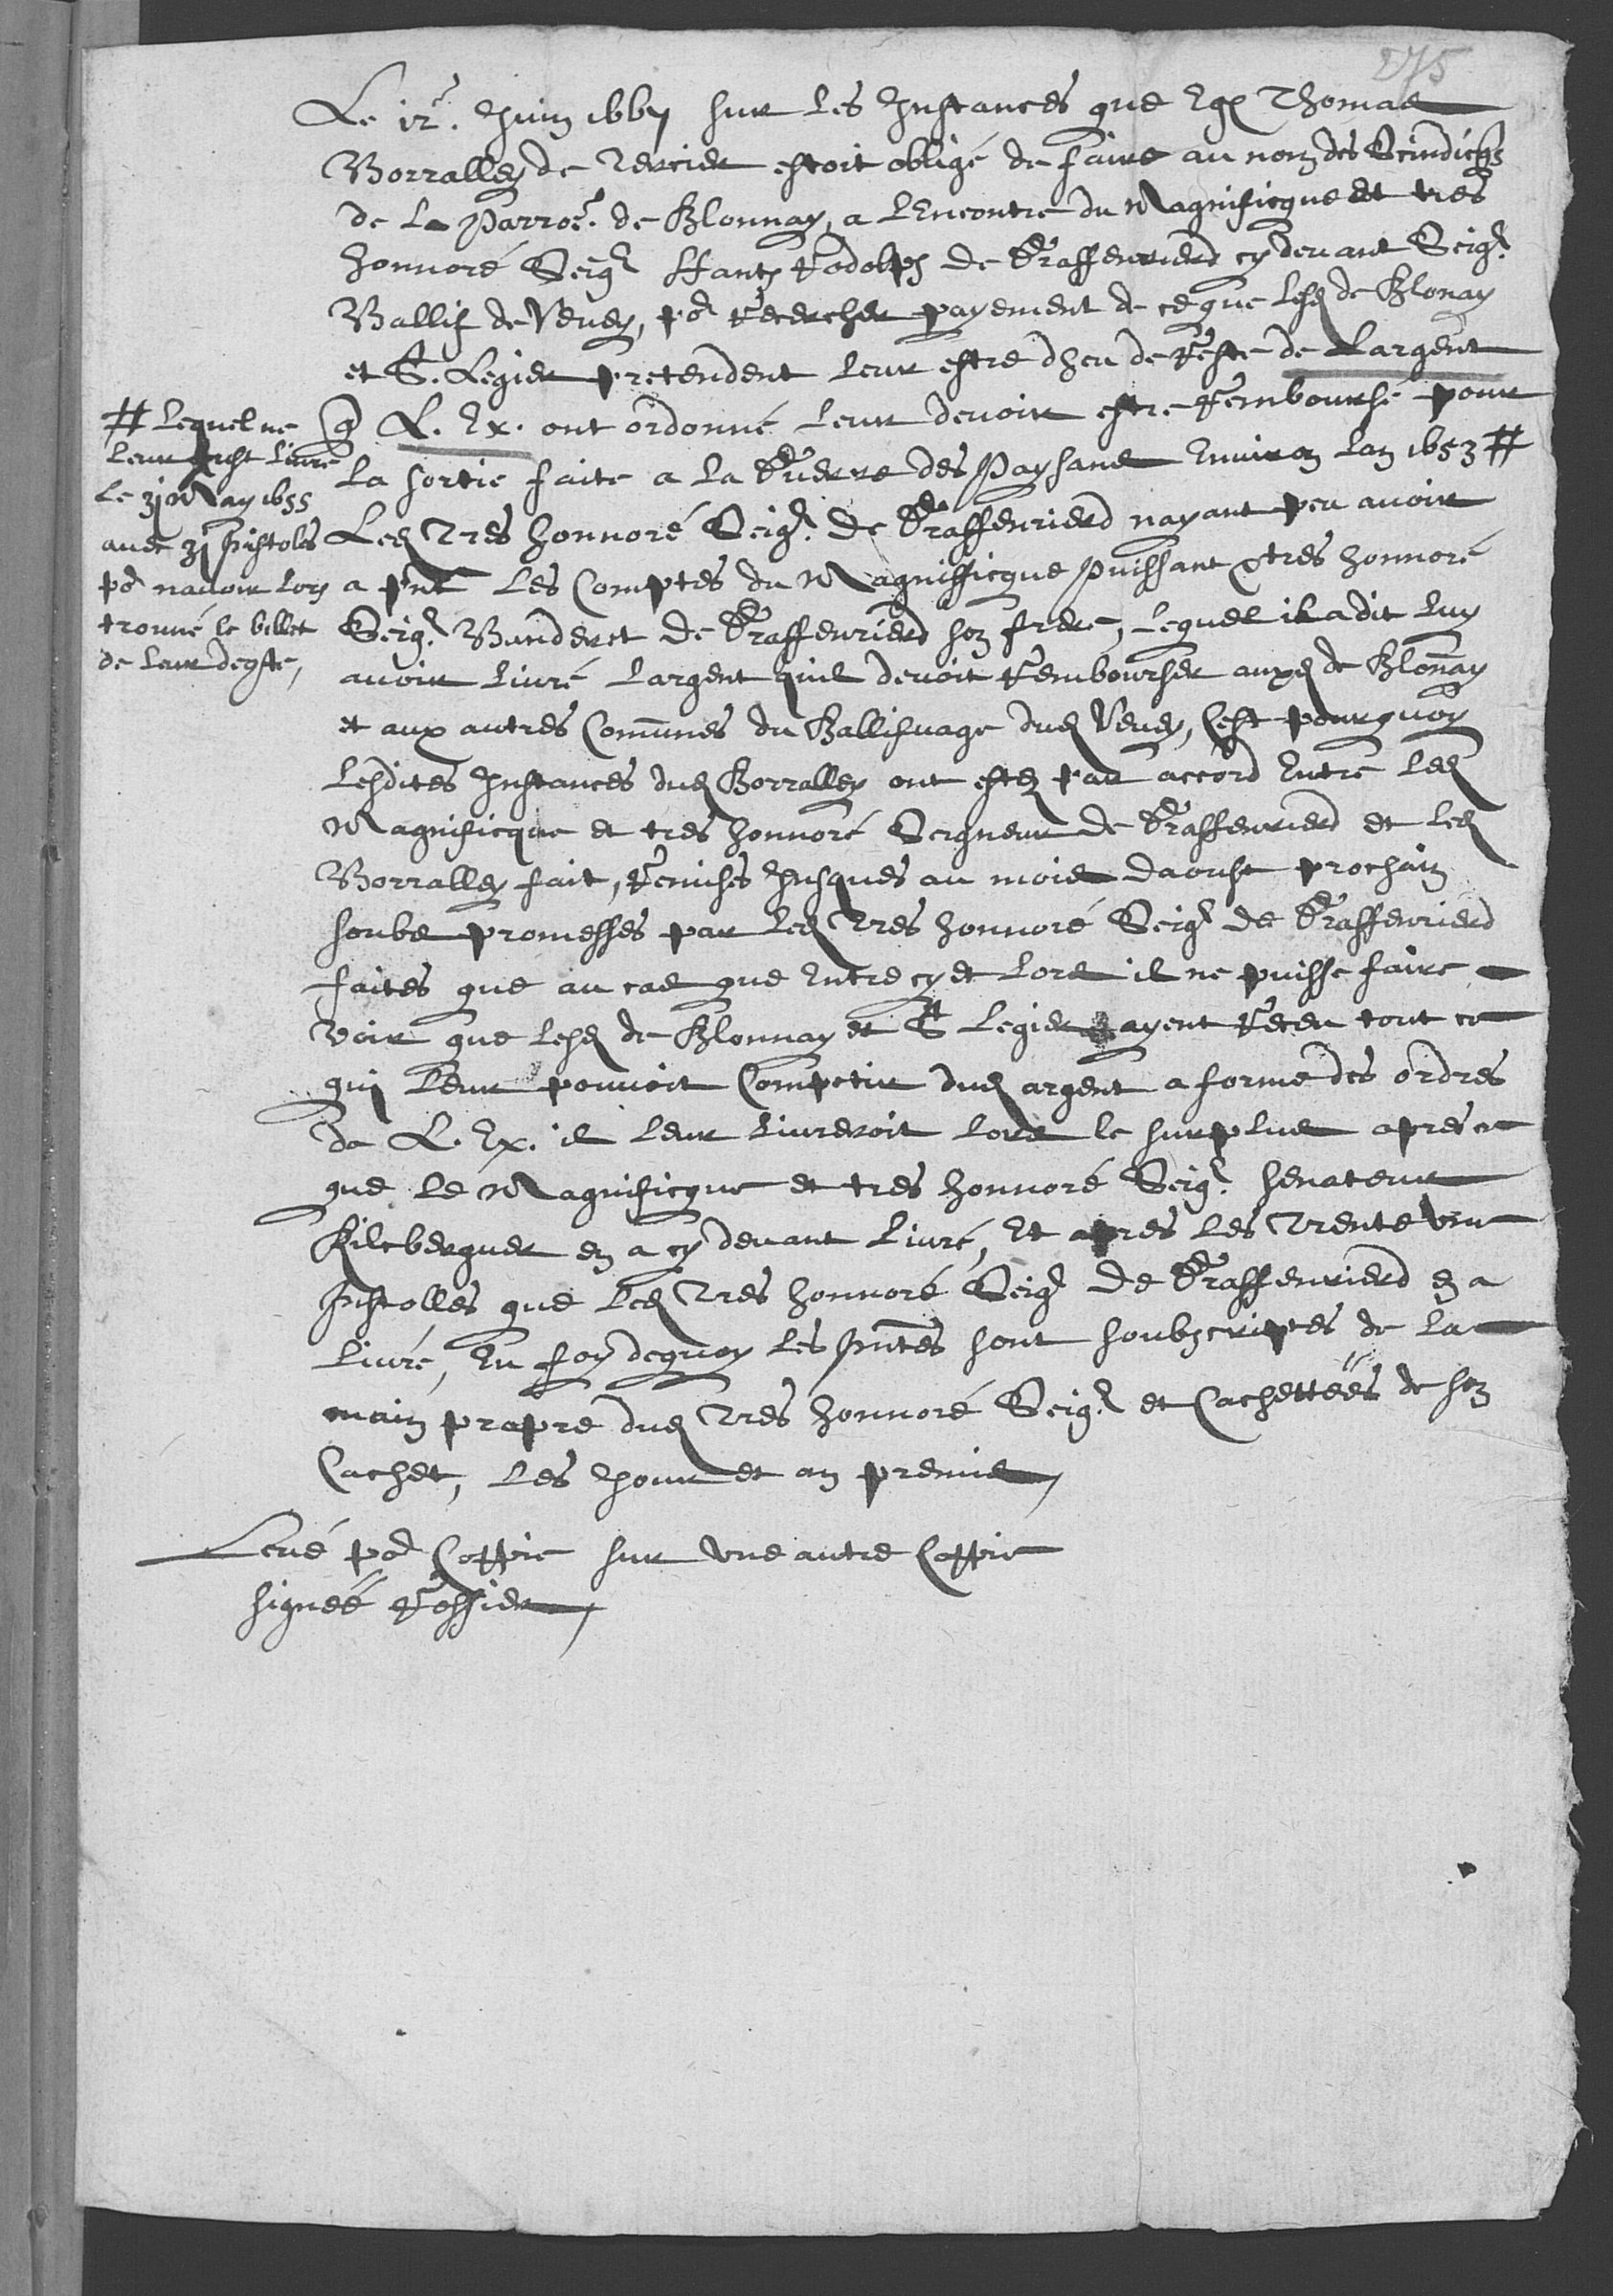 275
Le 12e. Juin 1661 sur les Instances que Egr Thomas
Borralley de Tercier estoit obligé de faire au nom des Scindicqs
de la Parroe. de Blonnay, a lEncontre du Magnificque et tres
honnoré Seigr Hantz Rodolph de Graffenrierd cy devant Seigr.
Ballif de Vevey, por Recercher payement de ce que lesd de Blonay
et St. Legier pretendent leur estre dheu de Reste de Largent
q L. Ex. ont ordonné leur devoir estre Remboursé pour
la sortie faite a la Guerre des Paysans Environ lan 1653 #
# lequel ne
leur fust livré
le 31 May 1655
avec 31 Pistoles
por navoir lors
trouvé le billet
de leur
Led Tres honnoré Seigr. de Graffenrierd nayant peu avoir
a pnt les Comptes du Magnifficque Puissant et tres honnoré
Seigr. Banderet de Graffenrierd son frere, lequel il a dit luy
avoir livré largent quil devoit Rembourser auxd de Blonnay
et aux autres Comunes du Ballifvage dud Vevey, Cest pourquoy
lesdites Instances dud Borralley ont estez par accord Entre led
Magnificque et tres honnoré Seigneur de Graffenrierd et led
Borralley fait, Remises Jusques au mois daoust prochain
soubs promesses par led Tres honnoré Seigr de Graffenrierd
faites que au cas que Entre cy et lors il ne puisse faire
voir que lesd de Blonnay et St Legier ayent Receu tout ce
qui leur pouvoit Competir dud argent a forme des ordres
de L. Ex. il leur livreroit lors le surplus apres ce
que le Magnificque et tres honnoré Seigr. Senateur
Kilcberguer en a cy devant livré, Et apres les Trente une
Pistolles que led Tres honnoré Seigr de Graffenrierd en a
livré, En foy dequoy les pntes sont soubzcriptes de la
main propre dud Tres honnoré Seigr. et Cachettées de son
Cachet, les Jour et an premis
Levé por Coppie sur une autre Coppie
signée Rossier